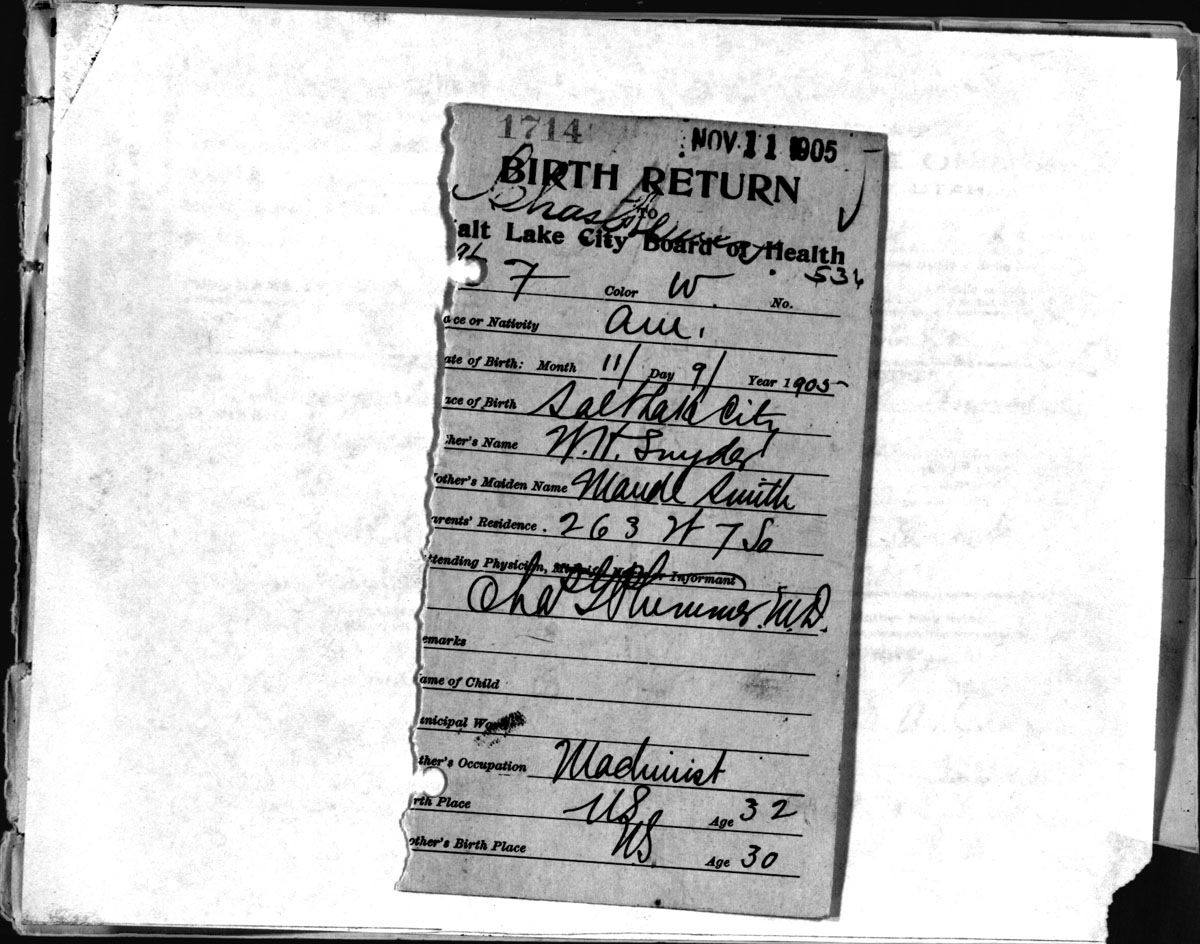 1714 NOV 11 1905
BIRTH RETURN
TO
alt Lake City Board of Health
536
7 Color W. No.
ace or Nativity am.
ate of Birth: Month 11/ Day 9/ Year 1905
ace of Birth Salt Lake City
her's Name W.H. Snyder
other's Maiden Name Maude Smith
arents' Residence. 263 W 7 So
ttending Physician, Informant
Chas G Plummer. M.D.
emarks
ame of Child
unicipal Ward
ther's Occupation Machinist
rth Place US Age 32
other's Birth Place US. Age 30